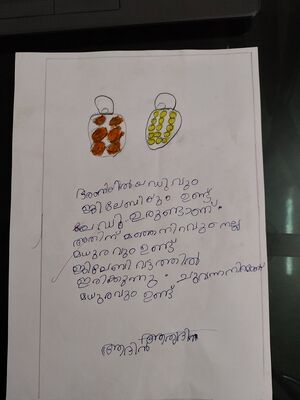 ഭരണിയിൽ ലഡുവും
ജിലേബിയും ഉണ്ട്
ലഡു ഉരുണ്ടാണ്.
അതിന് മഞ്ഞനിറവും നല്ല
മധുരവും ഉണ്ട്
ജിലേബി വട്ടത്തിൽ
ഇരിക്കുന്നു. ചുവന്ന
മധുരവും ഉണ്ട്
ആദിൻ